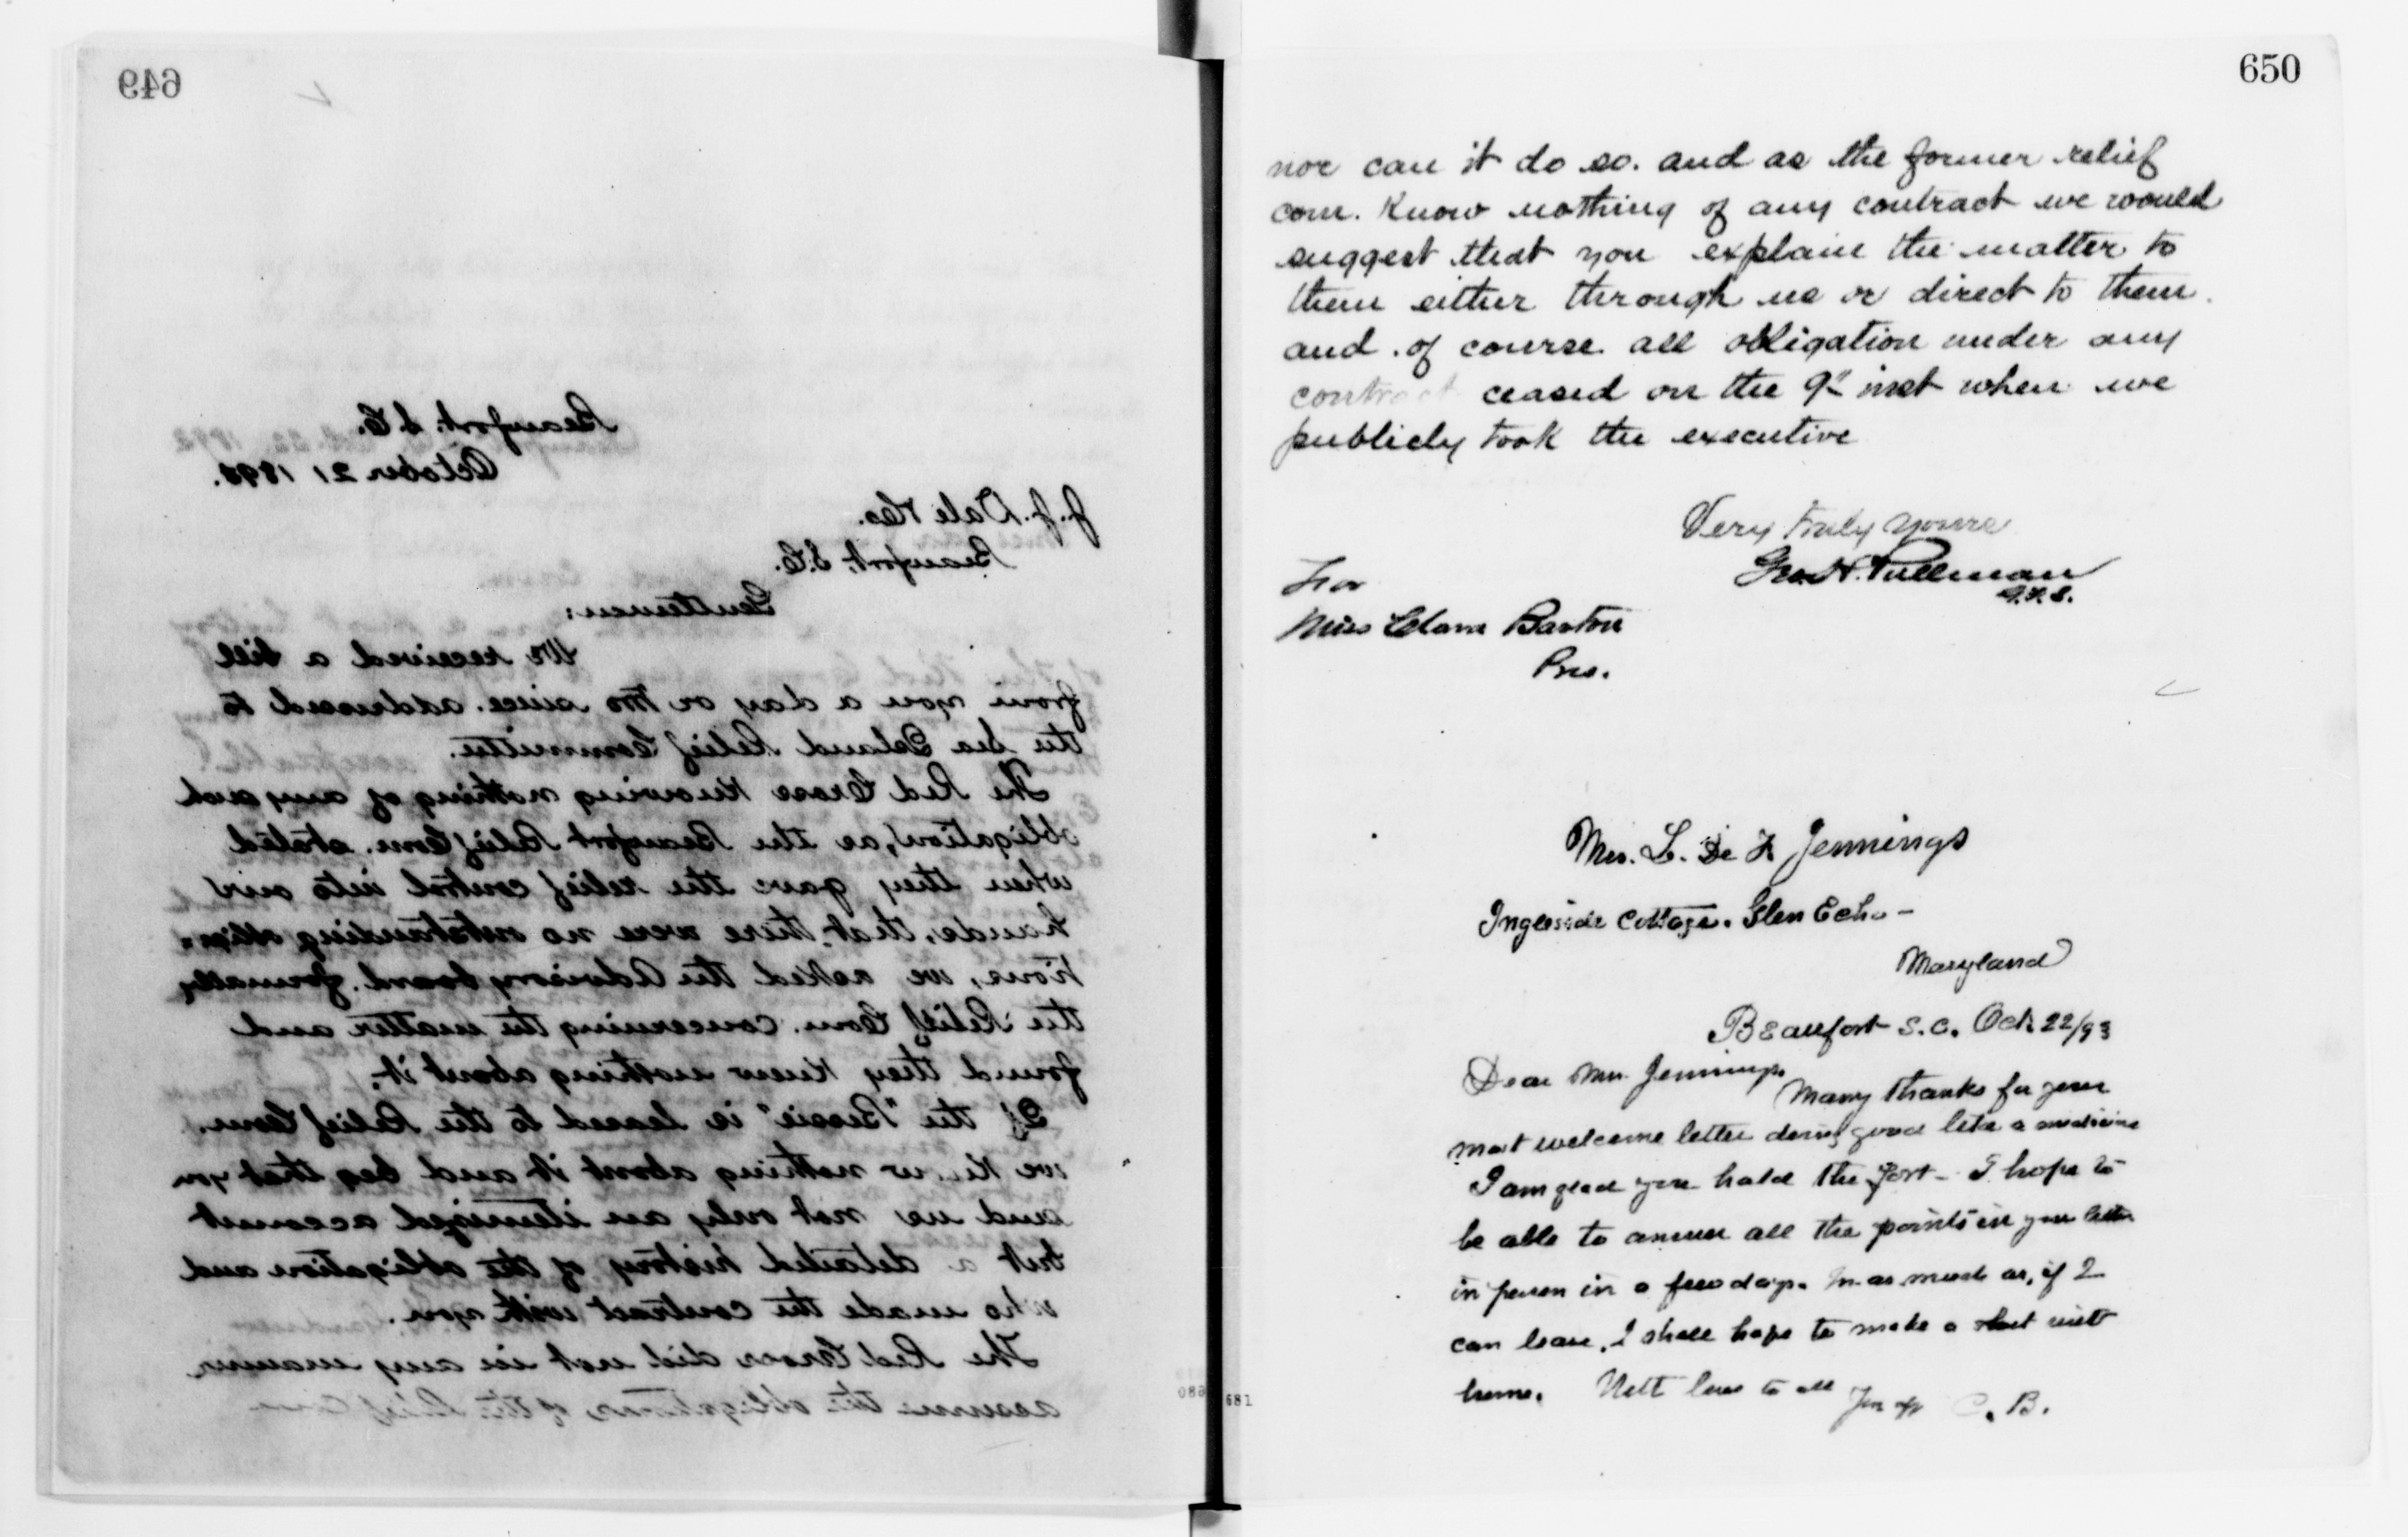 649
Beaufort. S.C.
October 21 1893.
J. J. Dale & Co.
Beaufort. S.C.
Gentlemen:
We received a bill
from you a day or two since. addressed to
the Sea Island Relief Committee.
The Red Cross knowing nothing of any such
obligation, as the Beaufort Relief Com. stated
when they gave the relief control into our
hands, that there were no outstanding obliga-
tions, we asked the Advisory board, formally
the Relief Com. concerning the matter and
found they knew nothing about it.
If the "Bessie" is leased to the Relief Com.
we know nothing about it and beg that you
send us not only an itemized account
but a detailed history of the obligation and
who made the contract with you.
The Red Cross did not in any manner
assume the obligations of the Relief Com
650
nor can it do so. and as the former relief
com. Know nothing of any contract we would
suggest that you explain the matter to
them either through us or direct to them.
and . of course. all obligation under any
contract ceased on the 9" inst when we
publicly took the executive
Very truly yours
Geo. H. Pullman
For
Miss Clara Barton
Pres.
Mrs. L. De F Jennings
Ingleside Cottage. Glen Echo -
Maryland
Beaufort S.C. Oct 22/93
Dear Mrs. Jennings
Many thanks for your
most welcome letter doing good like a medicine
I am glad you hold the fort - I hope to
be able to answer all the points in your letter
in person in a few days. In as much as, if I
can leave, I shall hope to make a short visit
home. With love to all
C. B.
680
681